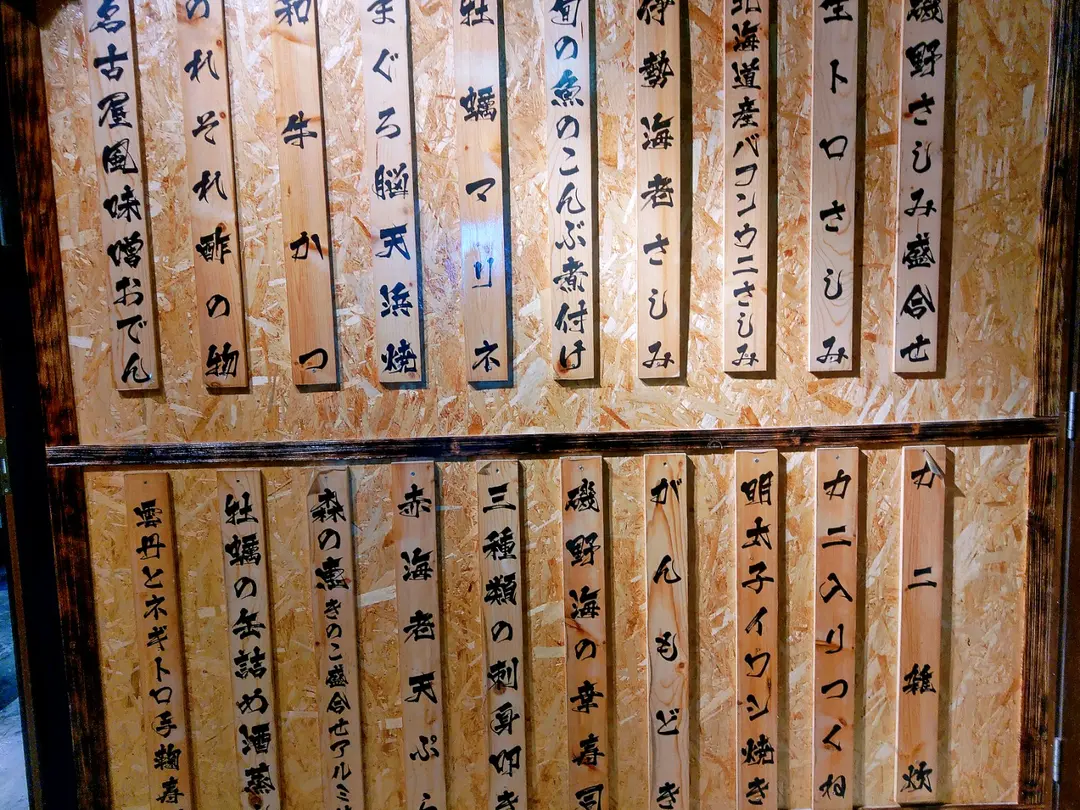 磯野さしみ盛合せ
生トロさしみ
北海道産バフンウニさしみ
伊勢海老さしみ
旬の魚のこんぶ煮付け
牡蠣マリネ
まぐろ脳天浜焼
和牛かつ
のれそれ酢の物
古屋風味噌おでん
カニ雑炊
カニ入りつくね
明太子イワシ焼き
がんもどき
磯野海の幸寿司
三種類の刺身叩き
赤海老天ぷら
森の恵きのこ盛合せアルミ
牡蠣の缶詰め酒蒸
雲丹とネギトロ手鞠寿